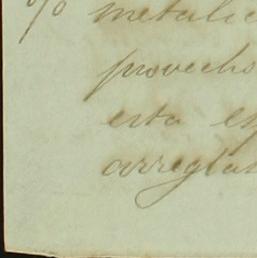 % metalic
provecho
esta es
arreglar